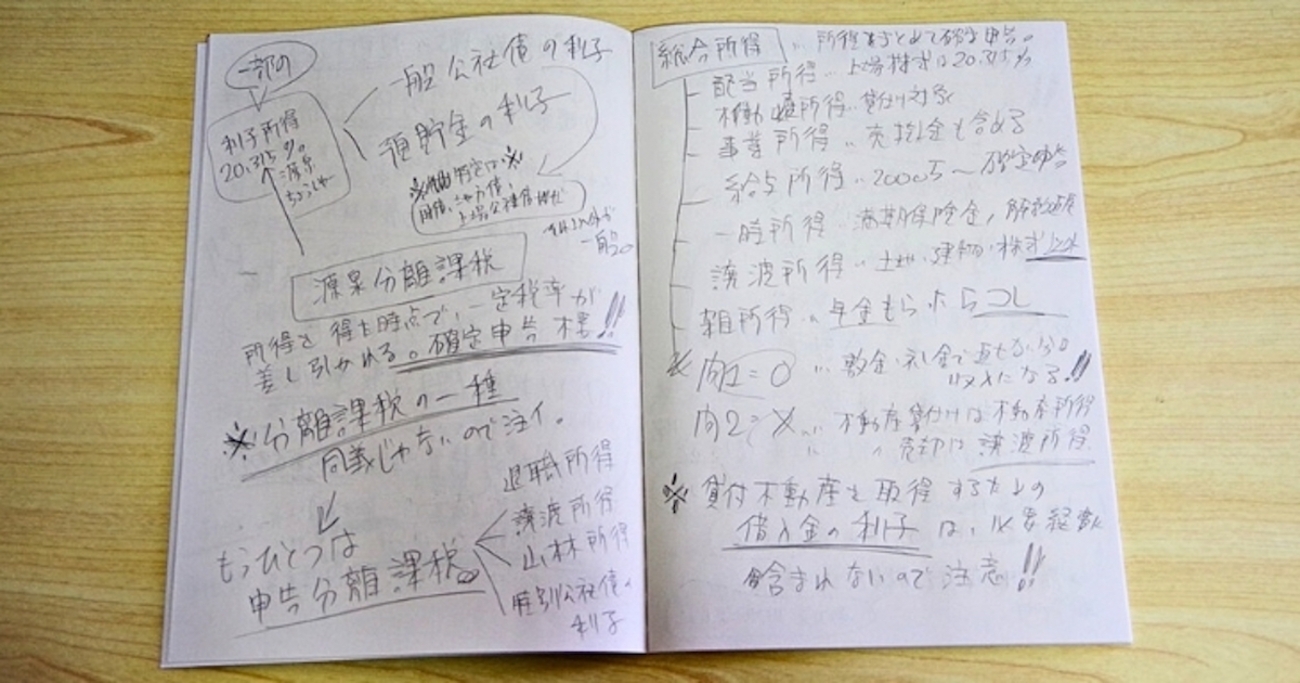 一部の
利子所得
20.315%。
源泉
ちょうしゅう
一般公社債の利子
預貯金の利子
※特定は※
国債、地方債、
上場公社債などが
それ以外が
一般。
源泉分離課税
所得を得た時点で、一定税率が
差し引かれる。確定申告不要!!
※分離課税の一種
同義じゃないので注イ。
もうひとつは
申告分離課税。
退職所得
譲渡所得
山林所得
特別公社債の
利子
総合所得 … 所得まとめて確定申告。
配当所得 … 上場株式は20.315%
不動産所得 … 貸付け対価
事業所得 … 売掛金も含める
給与所得 … 2000万〜確定申告
一時所得 … 満期保険金,解約返戻
譲渡所得 … 土地・建物・株式以外
雑所得 … 年金もらったらコレ
内1=0 … 敷金、礼金で
収入になる!!
内2=× … 不動産貸付けは不動産所得
〃 〃 売却は譲渡所得
※貸付不動産を取得するための
借入金の利子は、必要経費
含まれないので注意!!